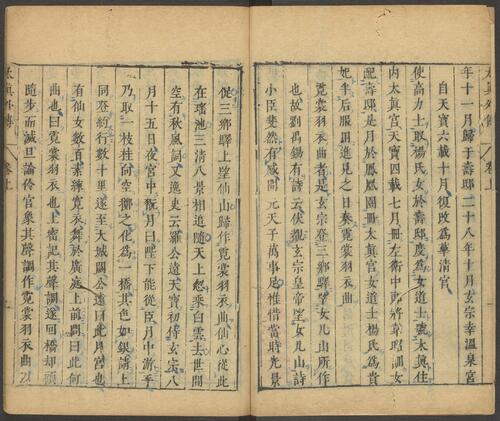 年十一月歸于壽邸二十八年十月玄宗幸溫泉宮
自天寶六載十月復改為華清宮
使高力士取楊氏女於壽邸度為女道士號太真住
內太真宮天寶四載七月冊左衛中郎將韋昭訓女
配壽邸是月於鳳凰園冊太真宮女道士楊氏為貴
妃半后服用進見之日奏霓裳羽衣曲
霓裳羽衣曲者是玄宗登三鄉驛望女几山所作
也故劉禹錫有詩云伏覩玄宗皇帝望女几山詩
小臣斐然有感開元天子萬事足惟惜當時光景
促三鄉驛上望仙山歸作霓裳羽衣曲仙心從此
在瑤池三清八景相追隨天上忽乘白雲去世間
空有秋風詞又逸史云羅公遠天寶初侍玄宗八
月十五日夜宮中翫月曰陛下能從臣月中游乎
乃取一枝桂向空擲之化為一橋其色如銀請上
同登約行數十里遂至大城闕公遠曰此月宮也
有仙女數百素練寬衣舞於廣庭上前問曰此何
曲也曰霓裳羽衣也上密記其聲調遂回橋却顧
隨步而滅旦諭伶官象其聲調作霓裳羽衣曲以
太真外傳
卷上